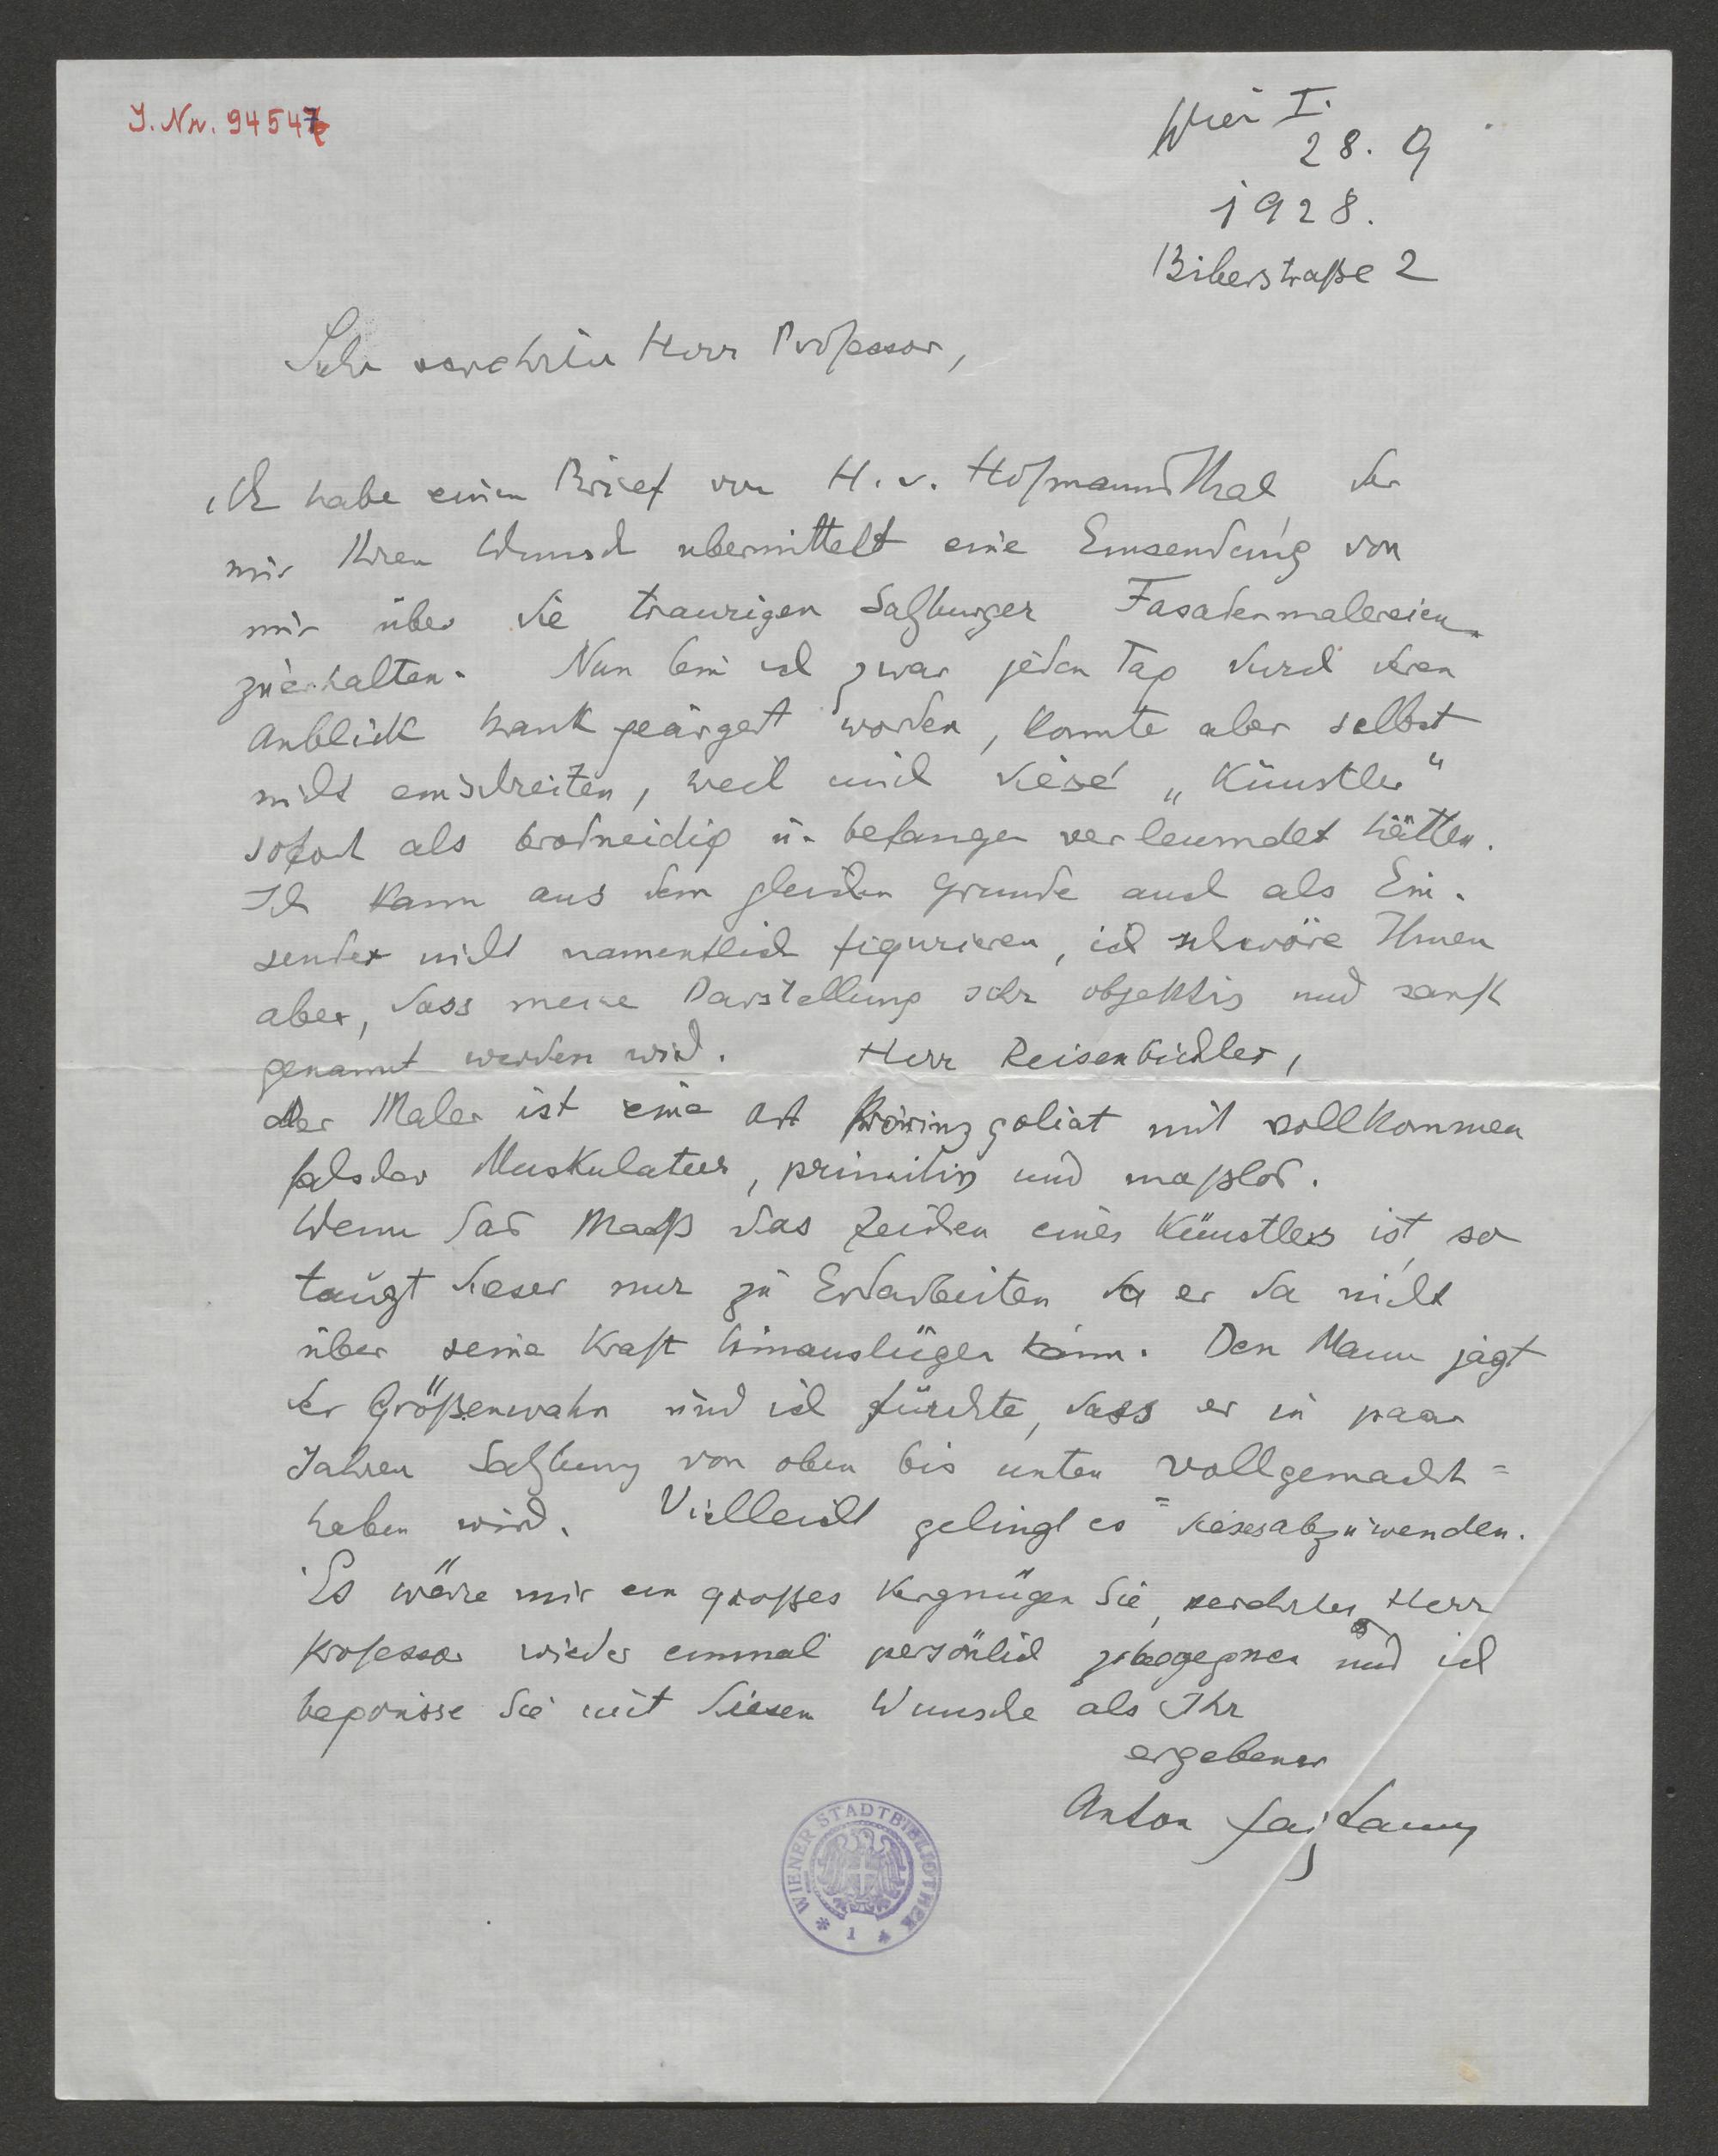 J. Nr. 94547
Wien I.
28. 9
1928.
Biberstraße 2
Sehr verehrter Herr Professor,
ich habe einen Brief von H. v. Hofmannsthal der
mir Ihren Wunsch übermittelt eine Einsendung von
mir über die traurigen Salzburger Fasadenmalereien
zu erhalten. Nun bin ich zwar jeden Tag durch deren
Anblick krank geärgert worden, konnte aber selbst
nicht einschreiten, weil mich diese „Künstler“
sofort als brotneidig u. befangen verleumdet hätten.
Ich kann aus dem gleichen Grunde auch als Ein-
sender nicht namentlich figurieren, ich schwöre Ihnen
aber, dass meine Darstellung sehr objektiv und sanft
genannt werden wird. Herr Reisenbichler,
der Maler ist eine Art Provinzgoliat mit vollkommen
falscher Muskulatur, primitiv und maßlos.
Wenn das Maß das Zeichen eines Künstlers ist, so
taugt dieser nur zu Erdarbeiten da er da nicht
über seine Kraft hinauslügen kann. Den Mann jagt
der Größenwahn und ich fürchte, dass er in paar
Jahren Salzburg von oben bis unten vollgemacht =
haben wird. Vielleicht gelingt es dieses abzuwenden.
Es wäre mir ein großes Vergnügen Sie, verehrter Herr
Professor wieder einmal persönlich zu begegnen und ich
begrüsse Sie mit diesem Wunsche als Ihr
ergebener
Anton Faistauer
WIENER STADTBIBLIOTHEK
* 1 *